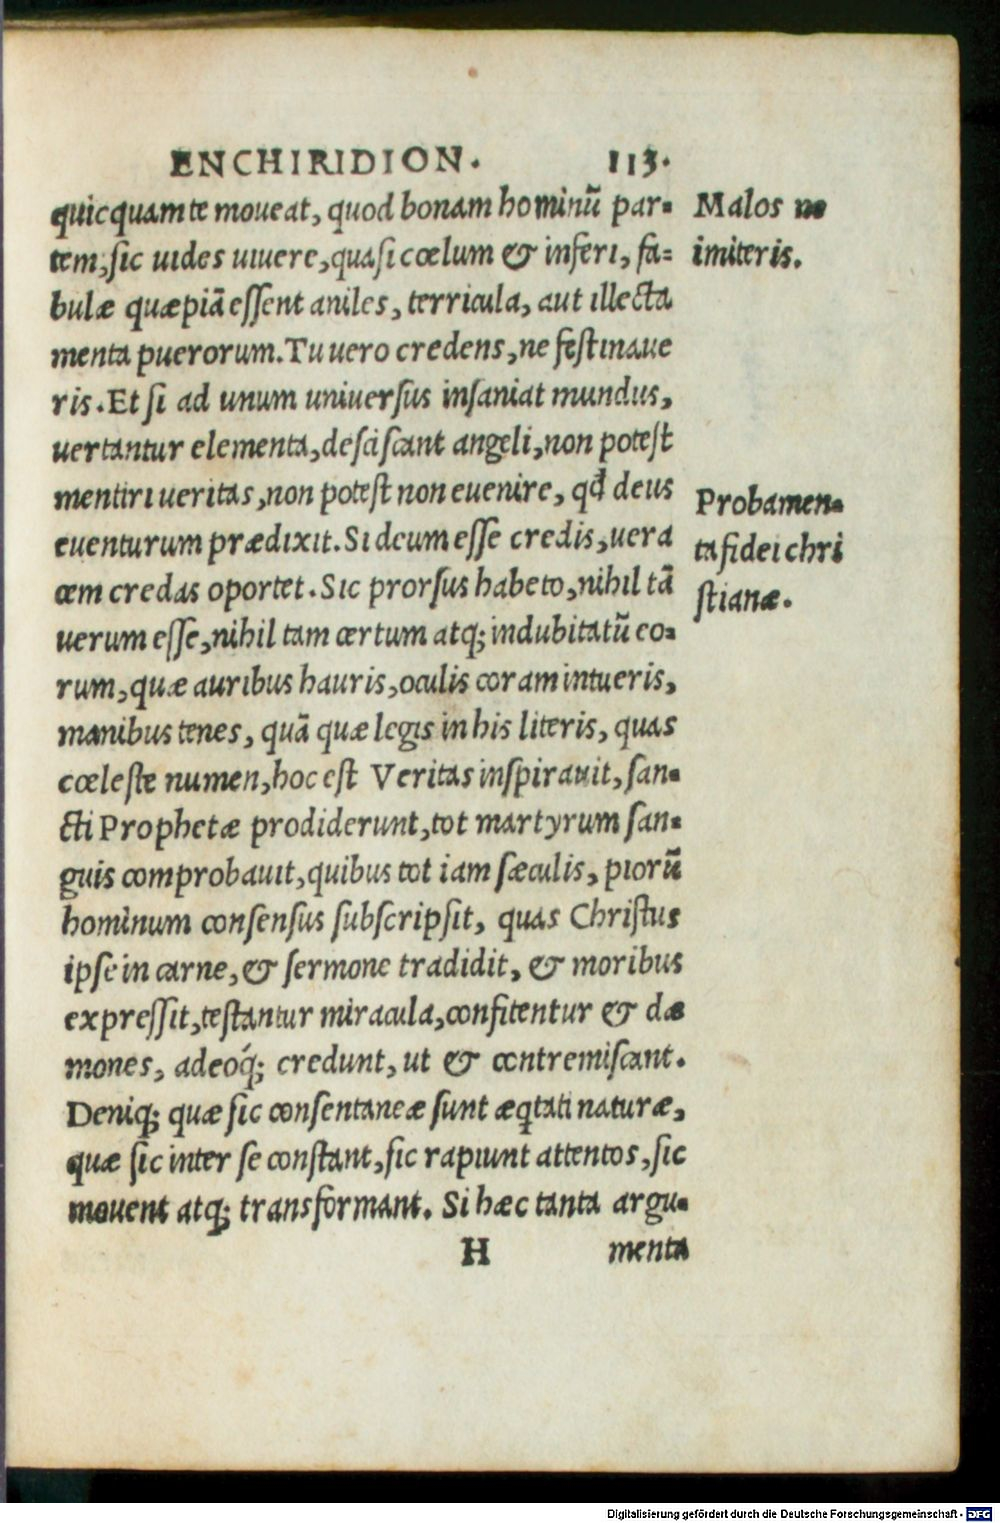 ENCHIRIDION. 113.
quicquam te moveat, quod bonam hominū par-
tem, sic uides uiuere, quasi cœlum & inferi, fa-
bulæ quæpiā essent aniles, terricula, aut illecta
menta puerorum. Tu uero credens, ne festinaue
ris. Et si ad unum universus insaniat mundus,
vertantur elementa, desciscant angeli, non potest
mentiri veritas, non potest non evenire, qd̄ deus
euenturum prædixit. Si deum esse credis, uera
cem credas oportet. Sic prorsus habeto, nihil tā
uerum esse, nihil tam certum atq; indubitatū eo-
rum, quæ auribus hauris, oculis coram intueris,
manibus tenes, quā quæ legis in his literis, quas
cœleste numen, hoc est Veritas inspiravit, san-
cti Prophetæ prodiderunt, tot martyrum san-
guis comprobauit, quibus tot iam sæculis, piorū
hominum consensus subscripsit, quas Christus
ipse in carne, & sermone tradidit, & moribus
expressit, testantur miracula, confitentur & dæ
mones, adeoq́; credunt, ut & contremiscant.
Deniq; quæ sic consentaneæ sunt æqtati naturæ,
quæ sic inter se constant, sic rapiunt attentos, sic
mouent atq; transformant. Si hæc tanta argu-
H menta
Malos ne
imiteris.
Probamen-
ta fidei chri
stianæ.
Digitalisierung gefördert durch die Deutsche Forschungsgemeinschaft - DFG